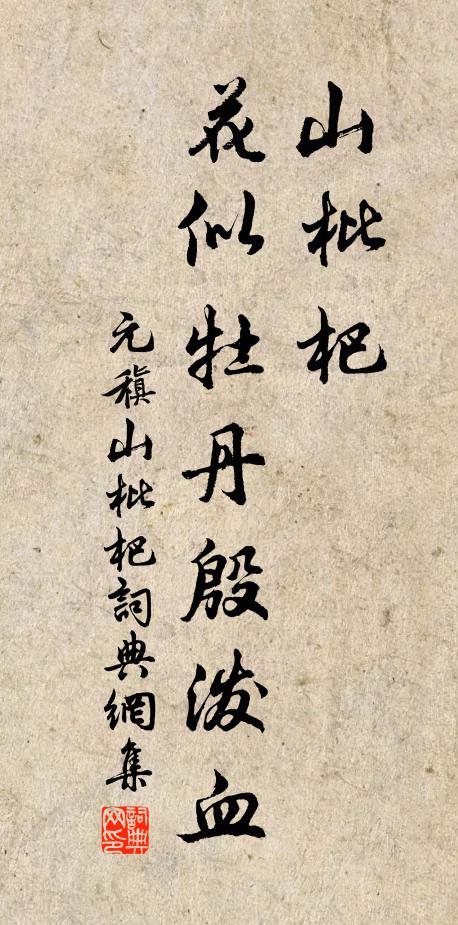 山枇杷
花似牡丹殷泼血
元稹山枇杷詞典網集
詞典
网印